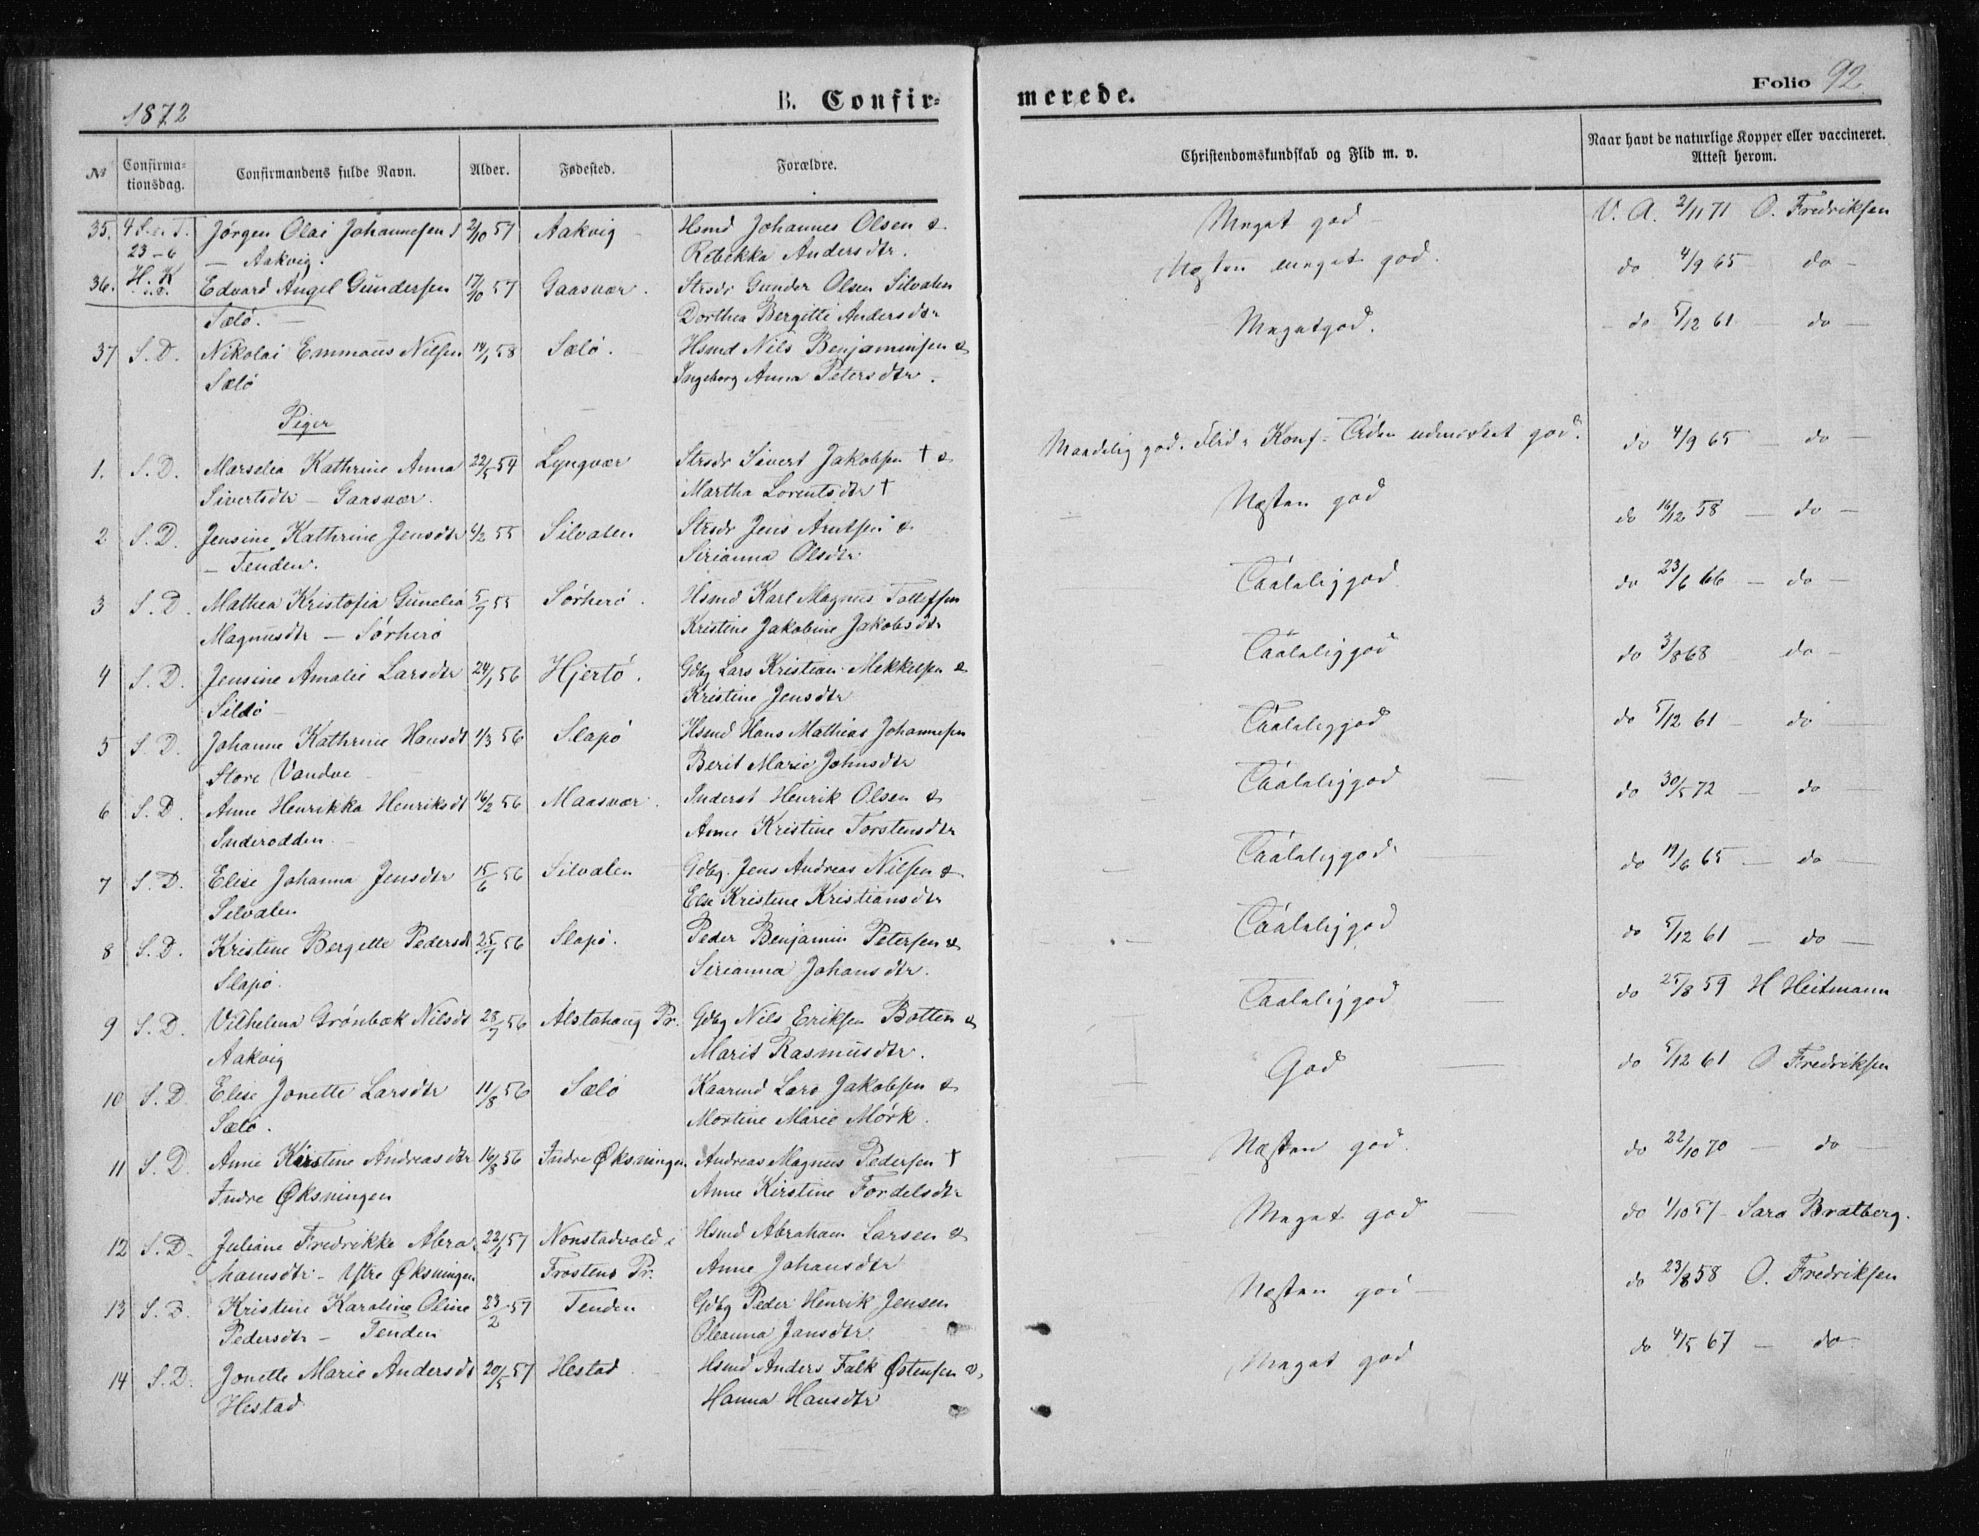 1872
B. Confir-
merede.
Folio 92
No
Confirma-
tionsdag.
Confirmandens fulde Navn.
Alder.
Fødested.
Forældre.
Christendomskundskab og Flid m. v.
Naar havt de naturlige Kopper eller vaccineret.
Attest herom.
35. 4 S. e. T. Jørgen Olai Johannesen 2/10 57 Aakvig Hsmd Johannes Olsen & Meget god V. A. 2/11 71 O. Fredriksen
23-6 — Aakvig. Rebekka Andersdtr.
36. H. K Edvard Angel Gundersen 17/10 57 Gaasvær. Strsdr Gunder Olsen Silvalen Næsten meget god. do 4/9 65 do
Sælö. Dorthea Bergitte Andersdtr
37 S. D. Nikolai Emmaus Nilsen 14/1 58 Sælö. Hsmd Nils Benjaminsen & Megetgod. do 5/12 61 do
Sælö Ingeborg Anna Petersdtr.
Piger
1. S. D. Marselia Kathrine Anna 22/5 54 Lyngvær Strsdr Sivert Jakobsen † & Maadelig god. Flid i Konf. Tiden udmærket god. do 4/9 65 — do —
Sivertsdtr — Gaasvær. Martha Lorentsdtr †
2 S. D. Jensine Kathrine Jensdtr 6/2 55 Silvalen Strsdr Jens Arntsen & Næsten god do 16/12 58 — do —
— Tenden. Sirianna Olsdtr.
3 S. D. Mathea Kristofia Gunelia 5/7 55 Sørherö. Hsmd Karl Magnus Tollefsen Taaleliggod do 23/6 66 — do —
Magnusdtr — Sørherö Kristine Jakobine Jakobsdtr
4 S. D. Jensine Amalie Larsdtr 24/1 56 Hjertö. Gdbg Lars Kristian Mekkelsen & Taaleliggod do 3/8 68 — do —
Sildö — Kristine Jensdtr
5 S. D. Johanne Kathrine Hansdt 1/3 56 Slapö Hsmd Hans Mathias Johannesen Taaleliggod do 5/12 61 — do
Store Vandve Berit Marie Johnsdtr
6 S. D. Anne Henrikka Henriksdt 16/2 56 Maasvær. Inderst Henrik Olsen & Taaleliggod do 30/5 72 — do —
Inderodden. Anne Kristine Torstensdtr
7 S. D. Elise Johanna Jensdtr 15/6 56 Silvalen Gdbg. Jens Andreas Nilsen & Taaleliggod do 19/6 65 — do —
Silvalen Else Kristine Kristiansdtr
8 S. D. Kristine Bergitte Pedersdt 25/7 56 Slapö. Peder Benjamin Petersen & Taaleliggod do 5/12 61 — do —
Slapö. Sirianna Johansdtr.
9 S. D. Vilhelmina Grönbæk Nilsdt 28/7 56 Alstahoug Pr. Gdbg Nils Eriksen Botten & Taaleliggod do 25/8 59 H Heitmann
Aakvig Marit Rasmusdtr.
10 S. D. Elise Jonette Larsdtr 11/8 56 Sælö Kaarmd Lars Jakobsen & God do 5/12 61 O Fredriksen
Sælö. Mortine Marie Mörk.
11 S. D. Anne Kirstine Andreasdtr 16/8 56 Indre Øksningen Andreas Magnus Pedersen † Næsten god. do 22/10 70 — do —
Indre Øksningen Anne Kirstine Fordelsdtr
12 S. D. Juliane Fredrikke Abra- 22/1 57 Nonstadvold i Hsmd Abraham Larsen & Meget god do 1/10 57 Sara Bratberg.
hamsdtr — Ytre Øksningen Frostens Pr. Anne Johansdtr
13 S. D. Kristine Karoline Oline 23/2 57 Tenden Gdbg Peder Henrik Jensen Næsten god do 23/8 58 O. Fredriksen
Pedersdtr — Tenden Oleanna Jansdtr
14 S. D. Jonette Marie Andersdt 20/5 57 Hestad Hsmd Anders Falk Østensen & Meget god do 4/5 67 — do
Hestad Hanna Hansdtr